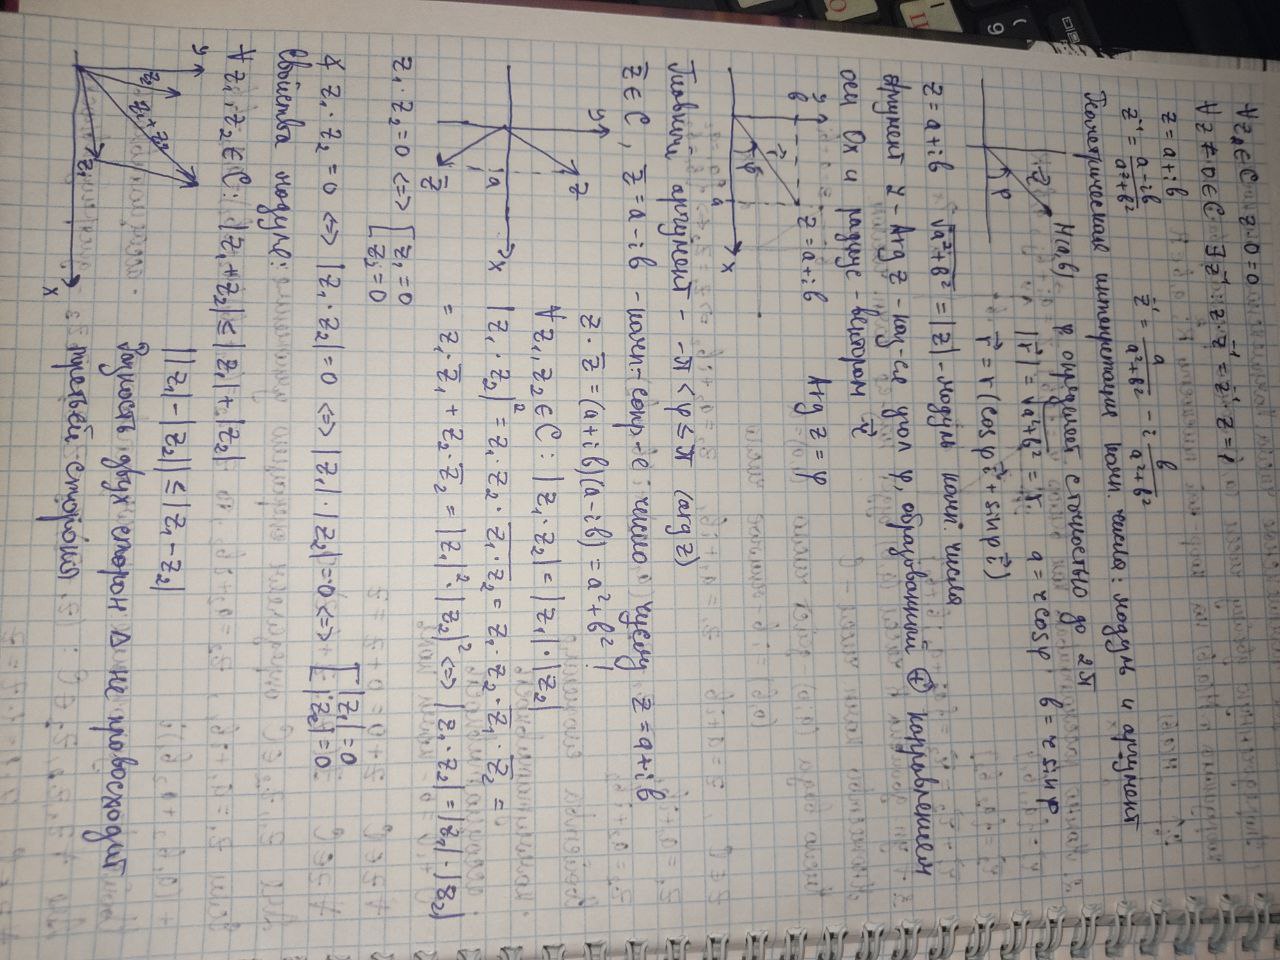 ∀ z₀ ∈ ℂ z·0 = 0
∀ z ≠ 0 ∈ ℂ ∃ z⁻¹: z·z⁻¹ = z⁻¹·z = 1
z = a+ib
z⁻¹ = (a-ib)/(a²+b²) z⁻¹ = a/(a²+b²) - i b/(a²+b²)
Геометрическая интерпретация комп. числа: модуль и аргумент
M(a,b) φ определяет с точностью до 2π
r⃗ φ |r⃗| = √(a²+b²) = r. a = r cosφ, b = r sinφ
r⃗ = r (cosφ i⃗ + sinφ i⃗)
z = a+ib √(a²+b²) = |z| - модуль комп. числа
Аргумент z - Arg z - наз-ся угол φ, образованный ⊕ направлением
оси Ox и радиус-вектором r⃗
y b r⃗ φ a x z = a+ib Arg z = φ
Главный аргумент - -π < φ ≤ π (arg z)
z ∈ ℂ, z̄ = a-ib - комп-сопр-е число числу z = a+ib
y z a x z̄
z·z̄ = (a+ib)(a-ib) = a²+b²
∀ z₁, z₂ ∈ ℂ: |z₁·z₂| = |z₁|·|z₂|
|z₁·z₂|² = z₁·z₂·z̄₁·z̄₂ = z₁·z₂·z̄₁·z̄₂ =
= z₁·z̄₁ + z₂·z̄₂ = |z₁|²·|z₂|² <=> |z₁·z₂| = |z₁|·|z₂|
z₁·z₂ = 0 <=> [ z₁ = 0
z₂ = 0
∀ z₁·z₂ = 0 <=> |z₁·z₂| = 0 <=> |z₁|·|z₂| = 0 <=> [ |z₁| = 0
|z₂| = 0
Свойства модуля:
∀ z₁, z₂ ∈ ℂ: |z₁+z₂| ≤ |z₁| + |z₂|
y z₂ z₁+z₂ z₁ x
||z₁| - |z₂|| ≤ |z₁ - z₂|
Разность двух сторон Δ не превосходит
третьей стороны